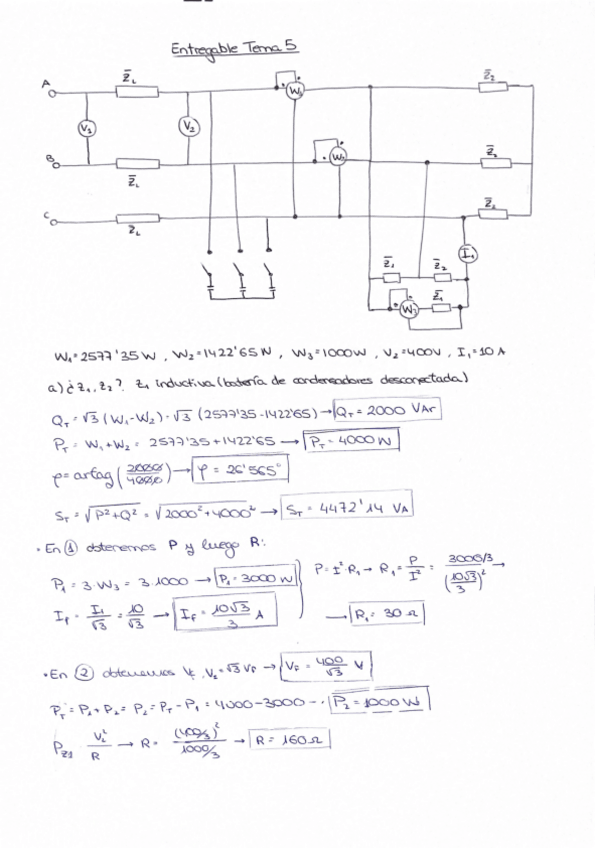 Entregable Tema 5
A
Z̄L
W1
Z̄2
V1
V2
B
Z̄L
W2
Z̄2
C
ZL
Z̄2
I1
Z̄1
Z̄2
W3
Z̄1
W1=2577'35W , W2=1422'65W , W3=1000W , V2=400V , I1=10A
a) ¿Z1, Z2?. Z1 inductiva (batería de condensadores desconectada)
QT = √3 (W1-W2) = √3 (2577'35-1422'65) → QT = 2000 VAr
PT = W1+W2 = 2577'35+1422'65 → PT = 4000W
φ = artag (2000/4000) → φ = 26'565°
ST = √P²+Q² = √2000²+4000² → ST = 4472'14 VA
• En ① obtenemos P y luego R:
P1 = 3·W3 = 3·1000 → P1 = 3000W
P = I²·R1 → R1 = P/I² = 3000/3 / (10√3/3)² →
If = I1/√3 = 10/√3 → If = 10√3/3 A
→ R1 = 30Ω
• En ② obtenemos Vf , VL=√3 Vf → Vf = 400/√3 V
PT = P1+P2 = P2 = PT - P1 = 4000-3000 → P2 = 1000W
PZ1 VL²/R → R = (400/3)²/1000/3 → R = 160Ω